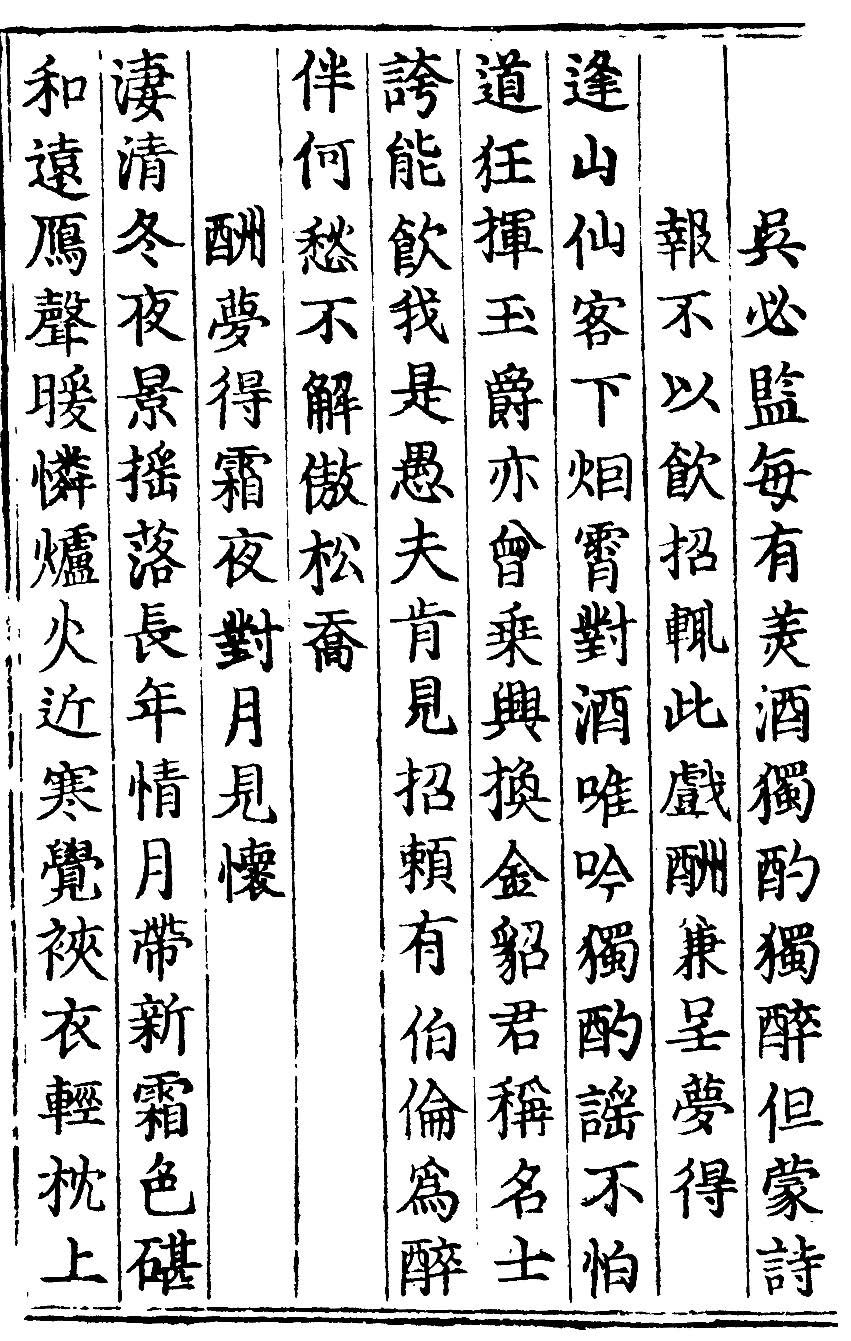 吳必監每有羙酒獨酌獨醉但蒙詩
報不以飲招輒此戲酬兼呈夢得
逢山仙客下烟霄對酒唯吟獨酌謡不怕
道狂揮玉爵亦曾乗興換金貂君稱名士
誇能飲我是愚夫肯見招頼有伯倫爲醉
伴何愁不解傲松喬
酬夢得霜夜對月見懷
淒清冬夜景揺落長年情月帶新霜色碪
和遠鴈聲暖憐爐火近寒覺裌衣輕枕上